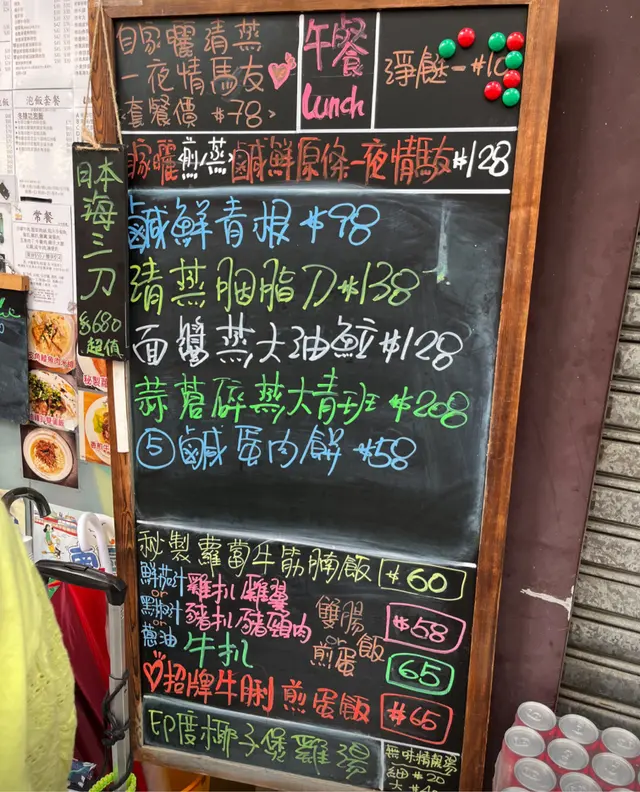 自家曬清蒸
一夜情馬友
套餐價 $78
午餐
Lunch
淨餸－$10
自家曬煎/蒸 鹹鮮原條一夜情馬友$128
日本海三刀
$680
超值
鹹鮮青根 $98
清蒸胭脂刀 $138
面醬蒸大油𩶘 $128
蒜蓉碎蒸大青班 $208
⑤鹹蛋肉餅 $58
秘製蘿蔔牛筋腩飯 $60
鮮茄汁
or
黑椒汁
or
蔥油
雞扒 雞翼
豬扒 豬頸肉
雙腸
or
煎蛋
飯
$58
牛扒
65
招牌牛脷 煎蛋飯 $65
印度椰子煲雞湯
無味精靚湯
細 $20
泡飯套餐
常餐